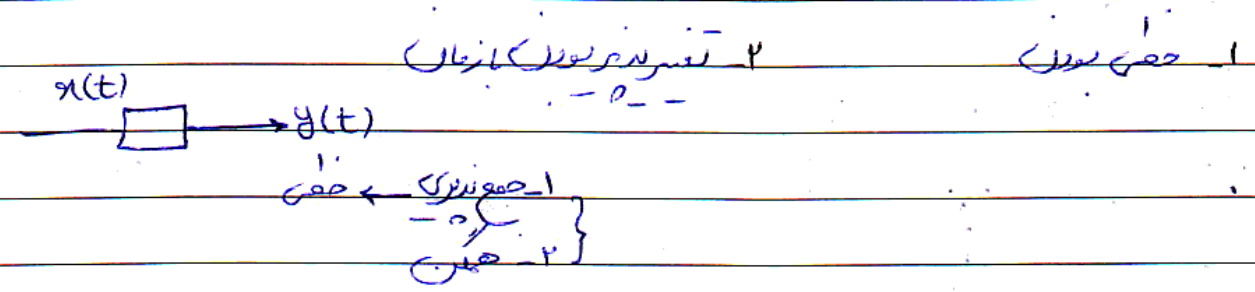 ۱ـ خطی بودن ۲ـ تغییرپذیر بودن با زمان
x(t)
y(t)
۱ـ جمع پذیری ← خطی
۲ـ همگن